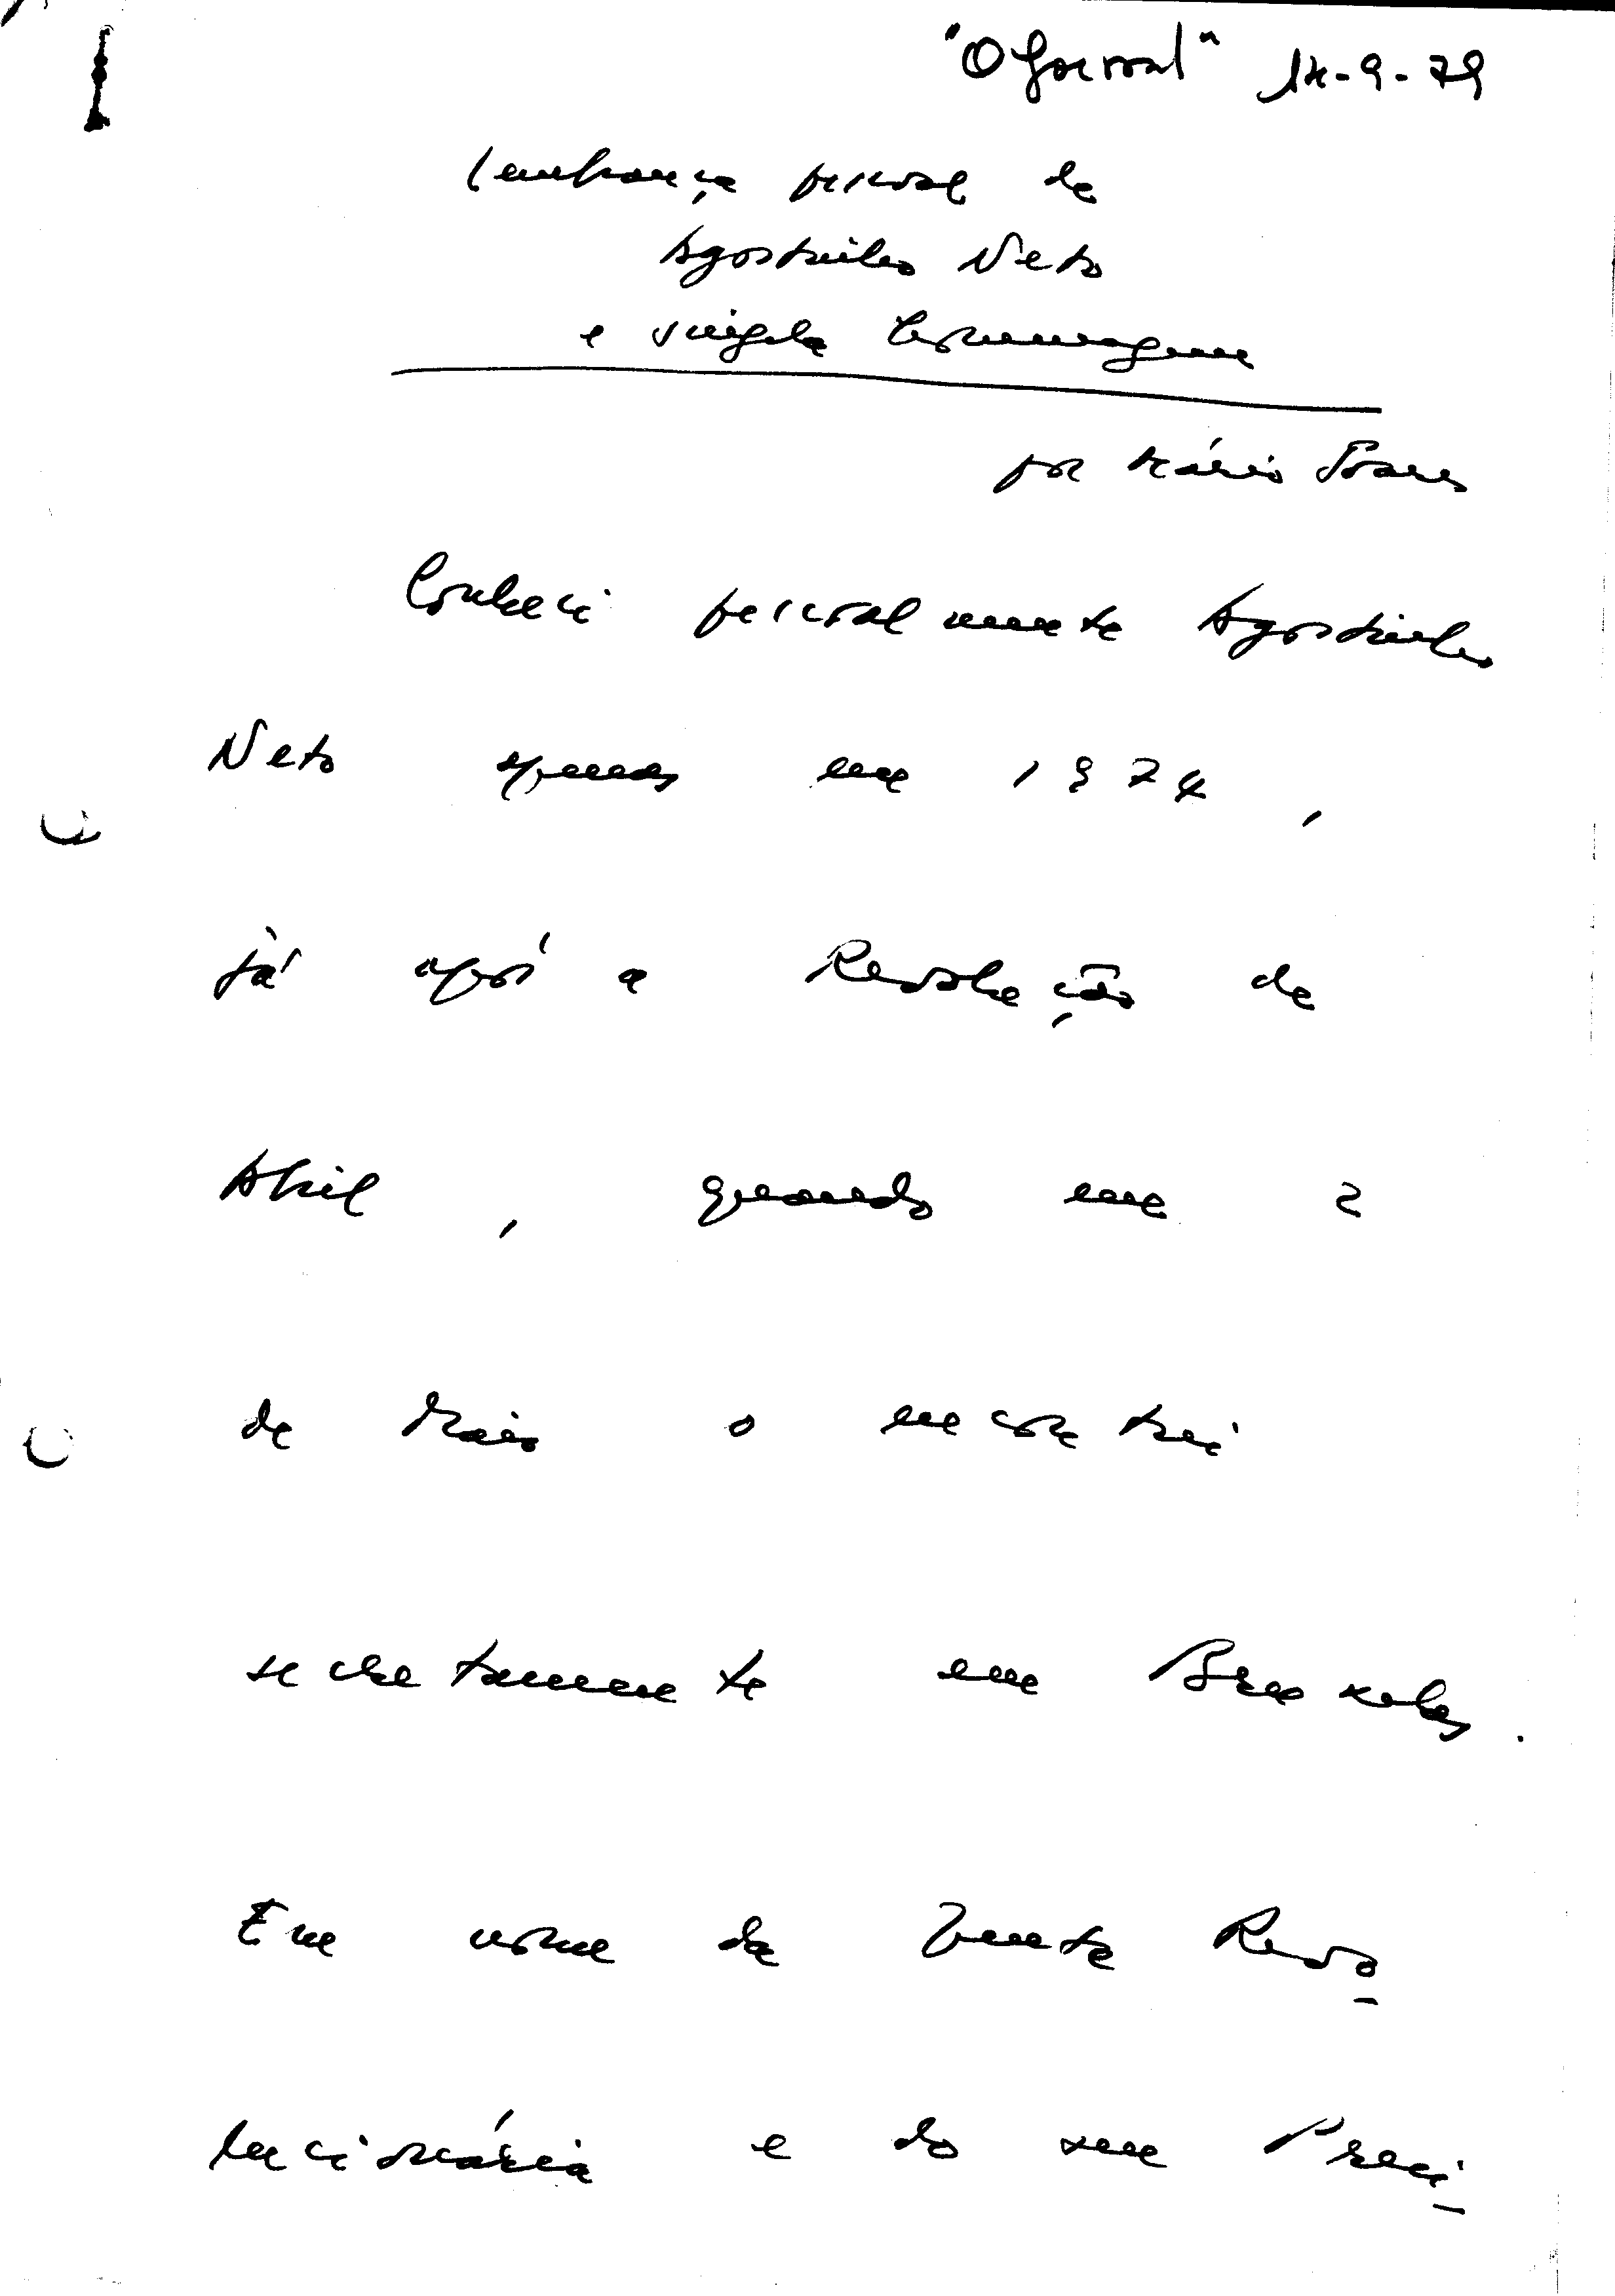 "O Jornal" 14-9-79
Lembrança pessoal de
Agostinho Neto
e singela homenagem
por Mário Soares
Conheci pessoalmente Agostinho
Neto apenas em 1974,
já após a Revolução de
Abril, quando em 2
de Maio o encontrei
secretamente em Bruxelas.
Em nome da Junta Revo-
lucionária e do seu Presi-